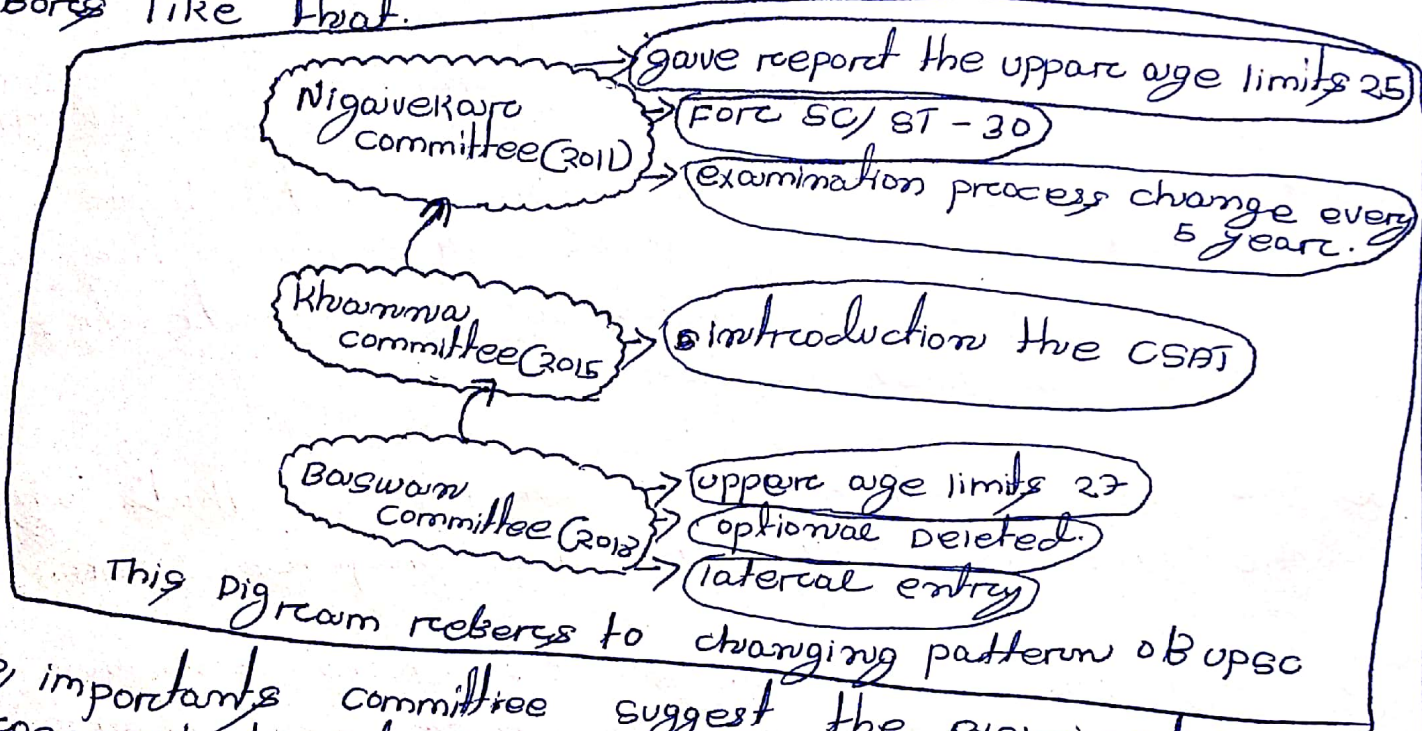 like that.
gave report the upparc age limits 25
Nigavekar
committee(2011)
Forc SC/ST - 30
examination process change every
5 year.
Khanna
committee(2015
introduction the CSAT
Baswan
committee(201
upparc age limits 27
optional Deleted.
lateral entry
This Digream refers to changing pattern of UPSC
importants committee suggest the